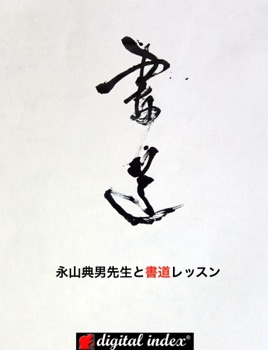 書道
永山典男先生と書道レッスン
digital index®